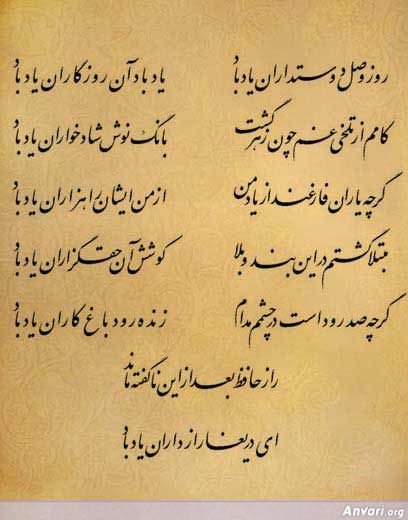 روز وصل دوستداران یاد باد یاد باد آن روزگاران یاد باد
کامم از تلخی غم چون زهر گشت بانگ نوش شادخواران یاد باد
گرچه یاران فارغند از یاد من از من ایشان را هزاران یاد باد
مبتلا گشتم در این بند و بلا کوشش آن حقگزاران یاد باد
گرچه صد رود است در چشم مدام زنده رود باغ کاران یاد باد
راز حافظ بعد از این ناگفته ماند
ای دریغا رازداران یاد باد
Anvari.org